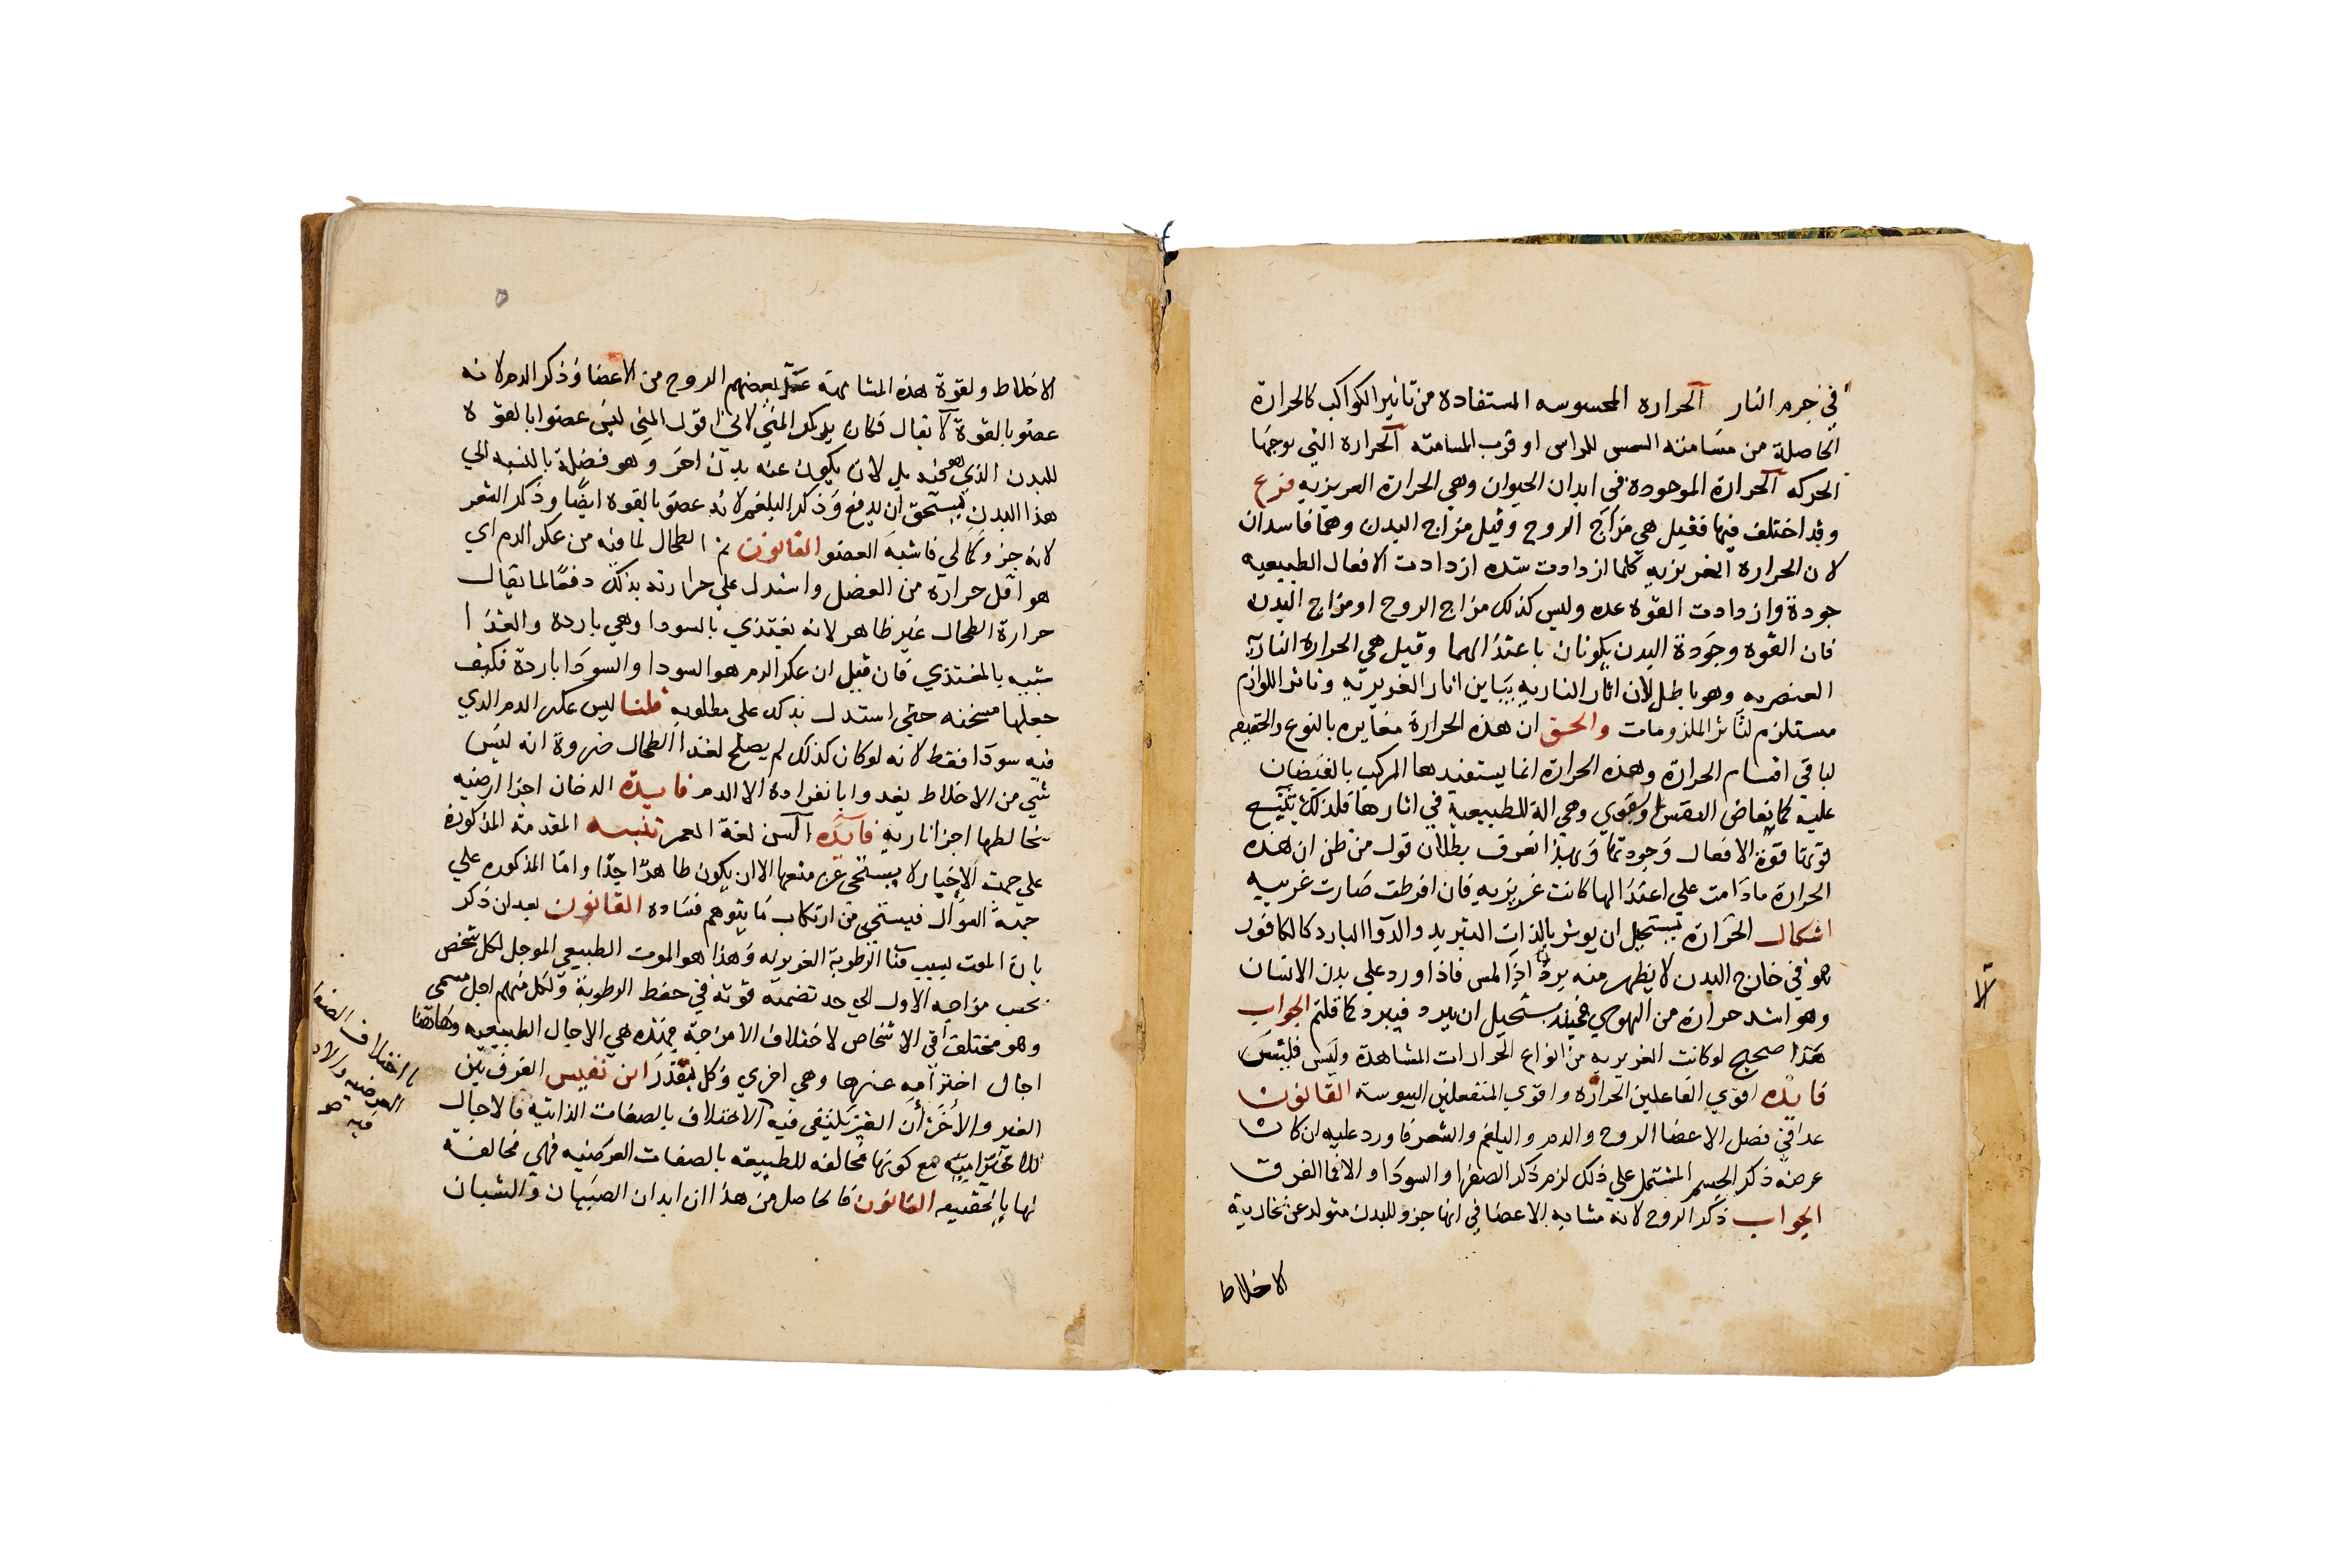 في جرم النار الحراره المحسوسه المستفادة من تاثير الكواكب كالحرارة
الحاصلة من مسامتة الشمس للراس او قرب المسامته الحراره التي توجبها
الحركه الحرارة الموجودة في ابدان الحيوان وهي الحرارة الغريزيه فرع
وقد اختلف فيها فقيل هي مزاج الروح وقيل مزاج البدن وهما فاسدان
لان الحراره الغريزيه كلما ازدادت شده ازدادت الافعال الطبيعيه
جودة وازدادت القوه عده وليس كذلك مزاج الروح او مزاج البدن
فان القوه وجودة البدن يكونان باعتدالهما وقيل هي الحرارة النارية
العنصريه وهو باطل لان اثار الناريه يباين اثار الغريزيه وتاثر اللوازم
مستلزم لتاثر الملزومات والحق ان هذه الحرارة مغايره بالنوع والحقيقه
لباقي اقسام الحرارة وهذه الحرارة انما يستفيدها المركب بالفيضان
عليه كما يفاض النفس والقوي وهي الة للطبيعية في اثارها فلذلك يتبع
قوتها قوة الافعال وجودتها وبهذا تعرف بطلان قول من ظن ان هذه
الحرارة مادامت علي اعتدالها كانت غريزيه فان افرطت صارت غريبه
اشكال الحرارة يستحيل ان يوثر بالذات التبريد والدوا البارد كالكافور
هو في خارج البدن لا يظهر منه برد اذا لمس فاذا ورد علي بدن الانسان
وهو اشد حرارة من الهوي فحينئذ يستحيل ان يبرد فيبرد كما قلتم الجواب
هذا صحيح لو كانت الغريزيه من انواع الحرارات المشاهدة وليس فليس
فايده اقوي الفاعلين الحرارة واقوي المنفعلين اليبوسة القانون
عدا في فصل الاعضا الروح والدم والبلغم والشعر فاورد عليه ان كان
غرضه ذكر الجسم المشتمل علي ذلك لزم ذكر الصفرا والسودا والا فما الفرق
الجواب ذكر الروح لانه مشابه الاعضا في انها جزو للبدن متولد عن بخارية
الاخلاط
لا
الاخلاط ولقوة هذه المشابهة عد بعضهم الروح من الاعضا وذكر الدم لانه
عضو بالقوة لا يقال فكان يذكر المني لاني اقول المني ليس عضوا بالقوة
للبدن الذي هو فيه بل لان يكون عنه بدن اخر وهو فضلة بالنسبه الي
هذا البدن يستحق ان يدفع وذكر البلغم لانه عضو بالقوه ايضا وذكر الشعر
لانه جزو كمالي فاشبه العضو القانون ثم الطحال لما فيه من عكر الدم اي
هو اقل حرارة من العضل واستدل علي حرارته بذلك دفعا لما يقال
حرارة الطحال غير ظاهر لانه يغتذي بالسودا وهي باردة والغذا
شبيه بالمغتذي فان قيل ان عكر الدم هو السودا والسودا باردة فكيف
جعلها مسخنه حتي استدل بذلك علي مطلوبه قلنا ليس عكر الدم الذي
فيه سودا فقط لانه لو كان كذلك لم يصلح لغذا الطحال ضروة انه ليس
شي من الاخلاط يغدوا بانفراده الا الدم فايدة الدخان اجزا ارضيه
يخالطها اجزا ناريه فايده السن لغة العمر تنبيه المقدمة المذكورة
علي جهة الاخبار لا يستحي عن منعها الا ان يكون ظاهرا جدا واما المذكوره علي
جهة السوال فيستحي من ارتكاب ما يتوهم فساده القانون بعد ان ذكر
بان الموت بسبب فنا الرطوبة الغريزيه وهذا هو الموت الطبيعي الموجل لكل شخص
بحسب مزاجه الاول الي حد تضمنه قوته في حفظ الرطوبة ولكل منهم اجل مسمي
وهو مختلف في الاشخاص لاختلاف الامزجة فهذه هي الاجال الطبيعيه وهاهنا
اجال اختراميه غيرها وهي اخري وكل بقدر ابن نفيس الفرق بين
الغير والاخر ان الغير يكتفي فيه الاختلاف بالصفات الذاتيه فالاجال
الاختراميه مع كونها مخالفه للطبيعيه بالصفات العرضيه فهي مخالفة
لها بالحقيقيه القانون فالحاصل من هذا ان ابدان الصبيان والشبان
باختلاف الصفات
العرضيه والاخر
فيه صح